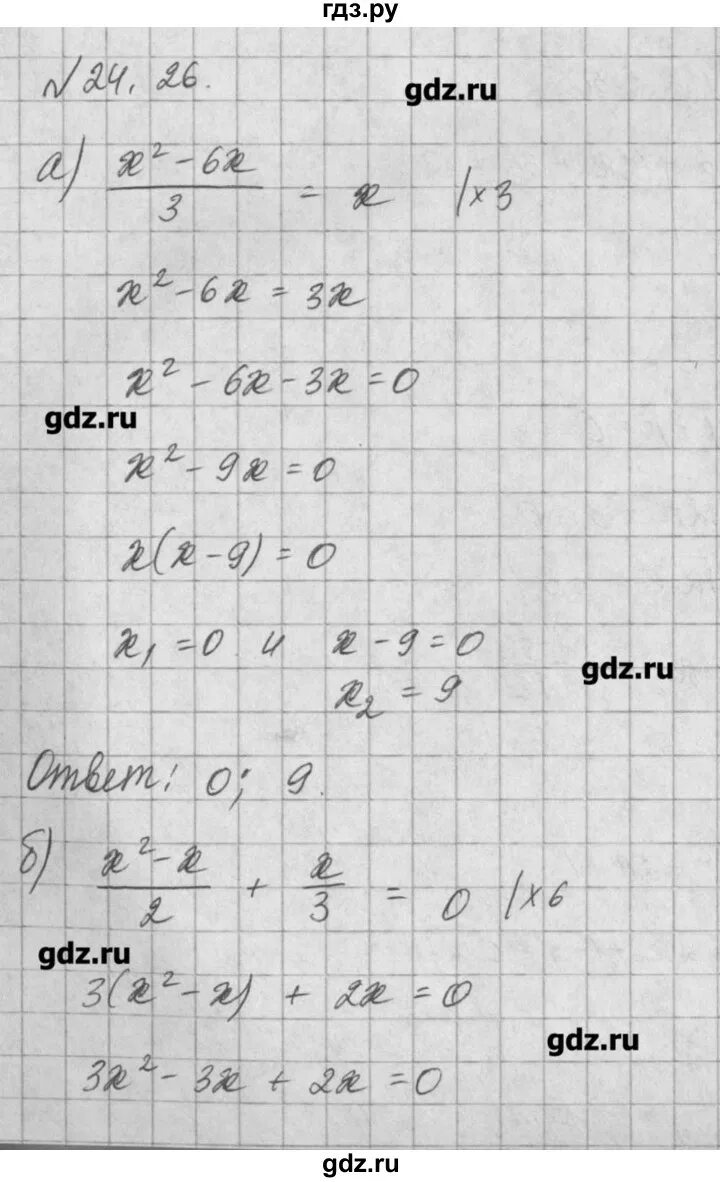 гдз.ру
№ 24. 26.
gdz.ru
а) (x² - 6x)/3 = x |×3
x² - 6x = 3x
x² - 6x - 3x = 0
gdz.ru
x² - 9x = 0
x(x - 9) = 0
x₁ = 0 и x - 9 = 0
gdz.ru
x₂ = 9
Ответ: 0; 9.
б) (x² - x)/2 + x/3 = 0 |×6
gdz.ru
3(x² - x) + 2x = 0
gdz.ru
3x² - 3x + 2x = 0
gdz.ru